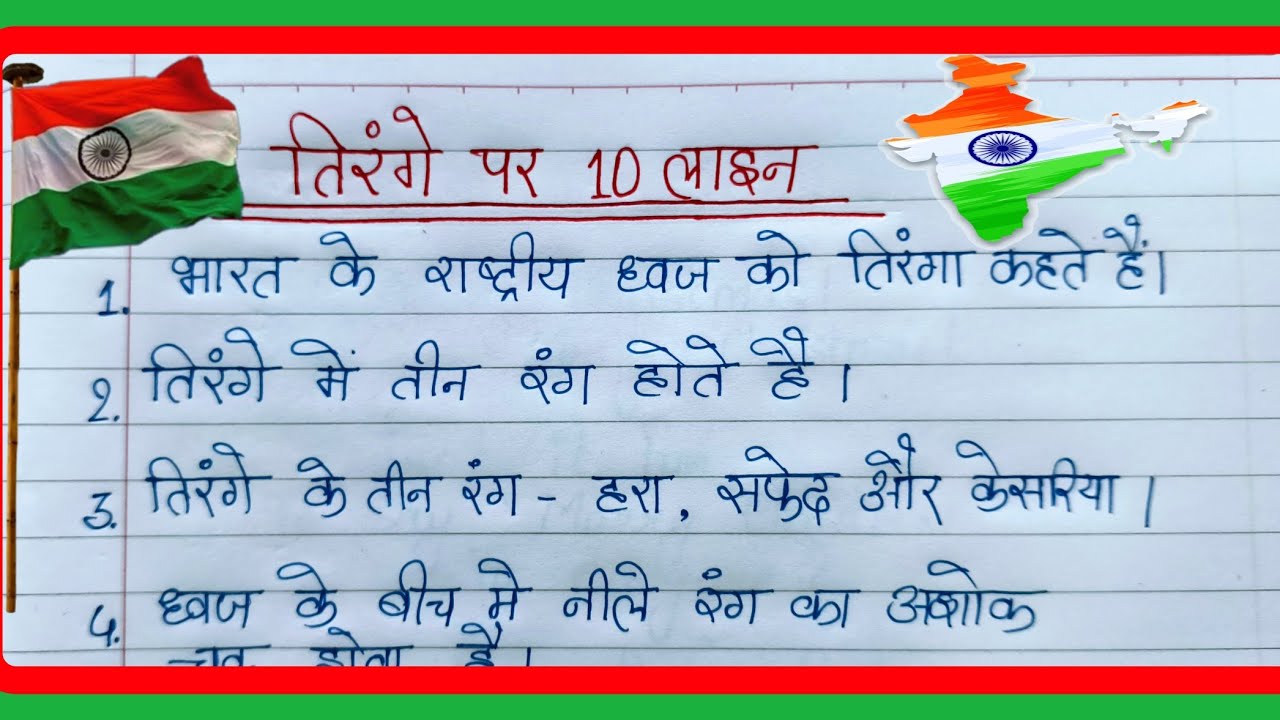 तिरंगे पर 10 लाइन
1. भारत के राष्ट्रीय ध्वज को तिरंगा कहते हैं।
2. तिरंगे में तीन रंग होते है।
3. तिरंगे के तीन रंग - हरा, सफेद और केसरिया।
4. ध्वज के बीच मे नीले रंग का अशोक
चक्र होता है।